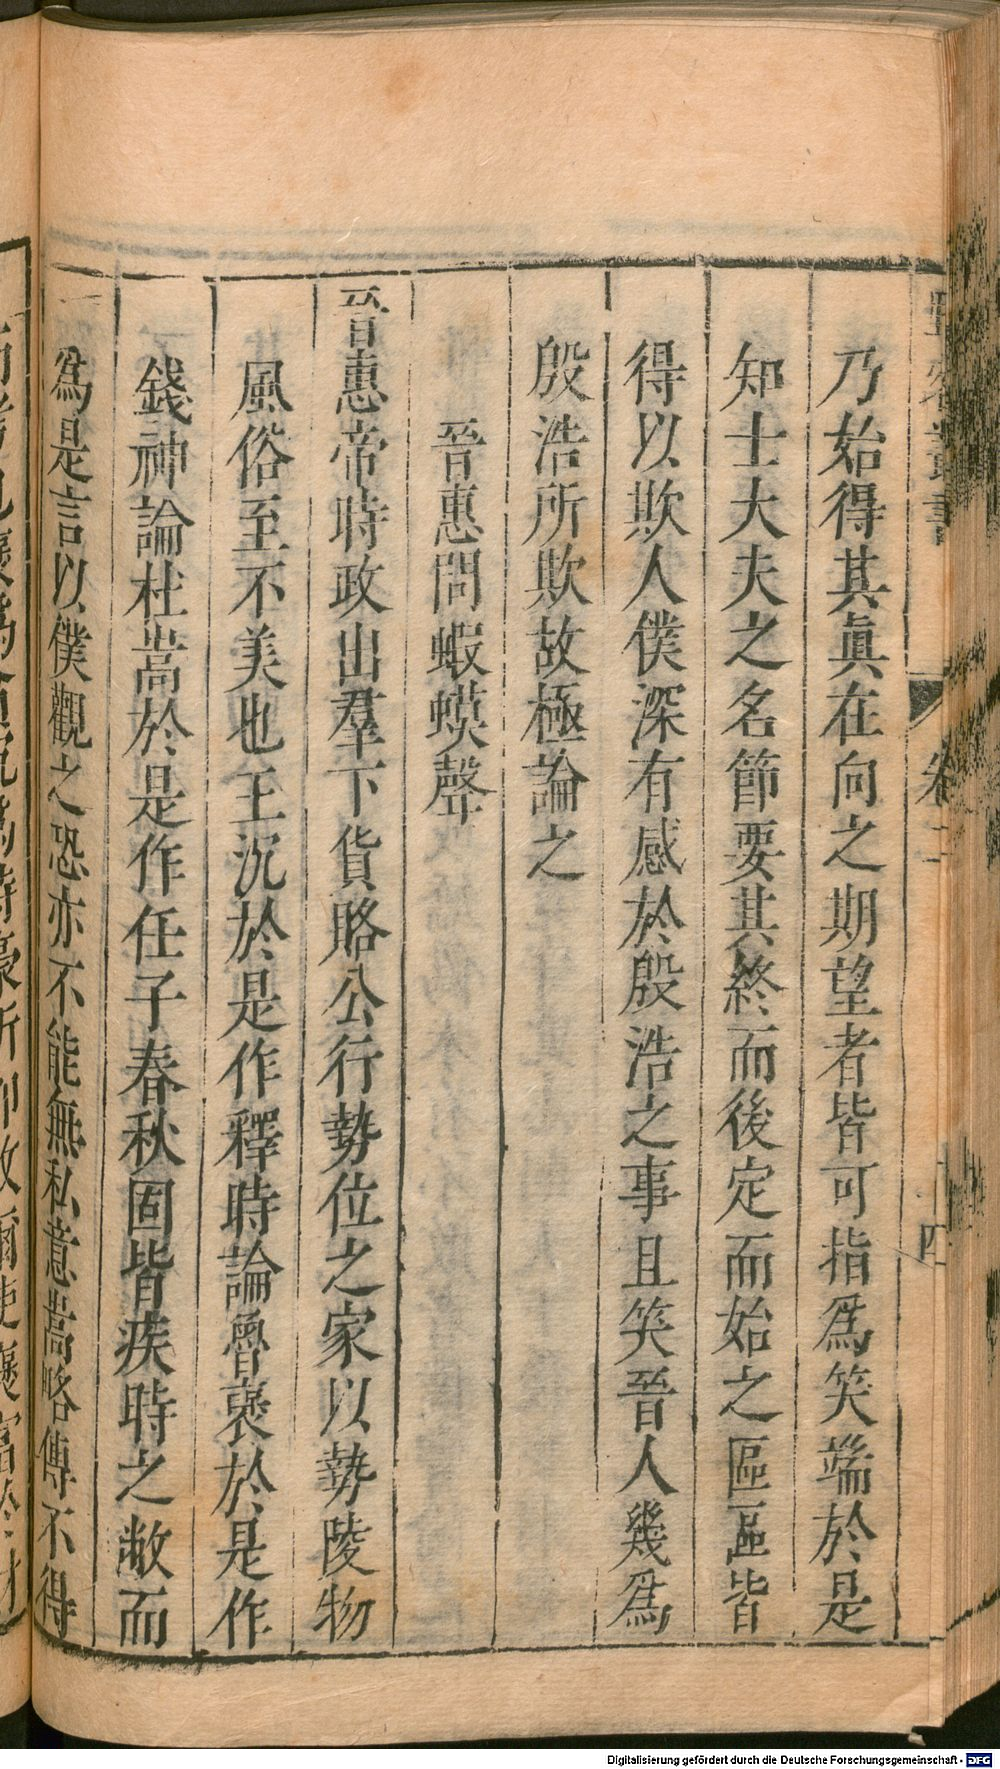 乃始得其眞在向之期望者皆可指爲笑端於是
知士大夫之名節要其終而後定而始之區區皆
得以欺人僕深有感於殷浩之事且笑晉人幾爲
殷浩所欺故極論之
晉惠問蝦蟆聲
晉惠帝時政出羣下貨賂公行勢位之家以勢陵物
風俗至不美也王沉於是作釋時論魯褒於是作
錢神論杜嵩於是作任子春秋固皆疾時之敝而
爲是言以僕觀之恐亦不能無私意嵩略傳不得
Digitalisierung gefördert durch die Deutsche Forschungsgemeinschaft - DFG